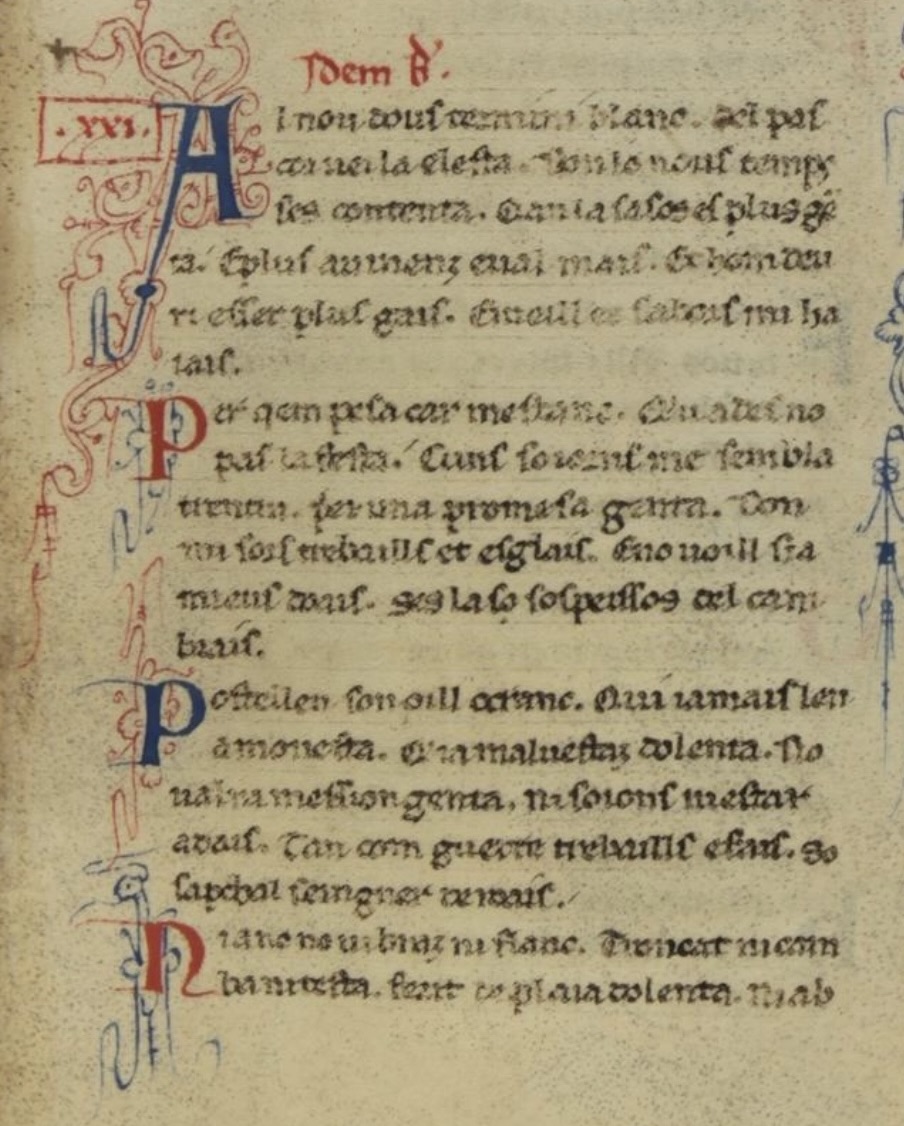 Idem B'.
.xxi. Al nou dous termini blanc. Del pas
cor vei la elesta. Don lo nous temps
ses contenta. Qan la sasos es plus gē
ta. Eplus auinenz eual mais. Et hom deu
ri esser plus gais. Emeill es sabors mi ha
iais.
Per qem pesa car mestanc. Qui ades no
pas la festa. Cuns soiorns me sembla
trenta. per una promesa genta. Don
mi sors trebaills et esglais. Eno uoill sia
mieus doais. Ses la so sospeissos del cam
brais.
Hostellen son oill ocranc. Qui iamais len
amonesta. Qia maluestaz dolenta. No
ualra mession genta. ni soiorns niestar
adais. Tan com guerre trebaills efais. So
sapchal seingner de roais.
Hianonouibraz ni flanc. Troncat ni cam
bani testa. ferit de plaia dolenta. niab